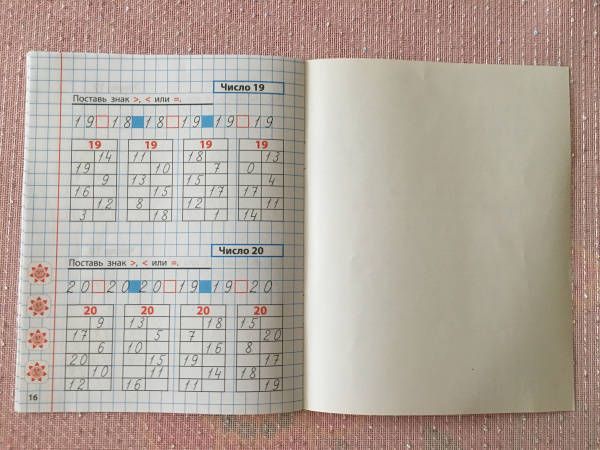 Число 19
Поставь знак >, < или =.
19 18 18 19 19 19
19 19 19 19
14 11 18 13
19 10 7 0
9 13 15 4
16 15 17 17
12 8 12 11
3 18 1 14
Число 20
Поставь знак >, < или =.
20 20 20 19 19 20
20 20 20 20
9 13 18 15
17 5 7 20
6 10 16 8
20 15 19 17
10 11 14 18
12 16 11 19
16